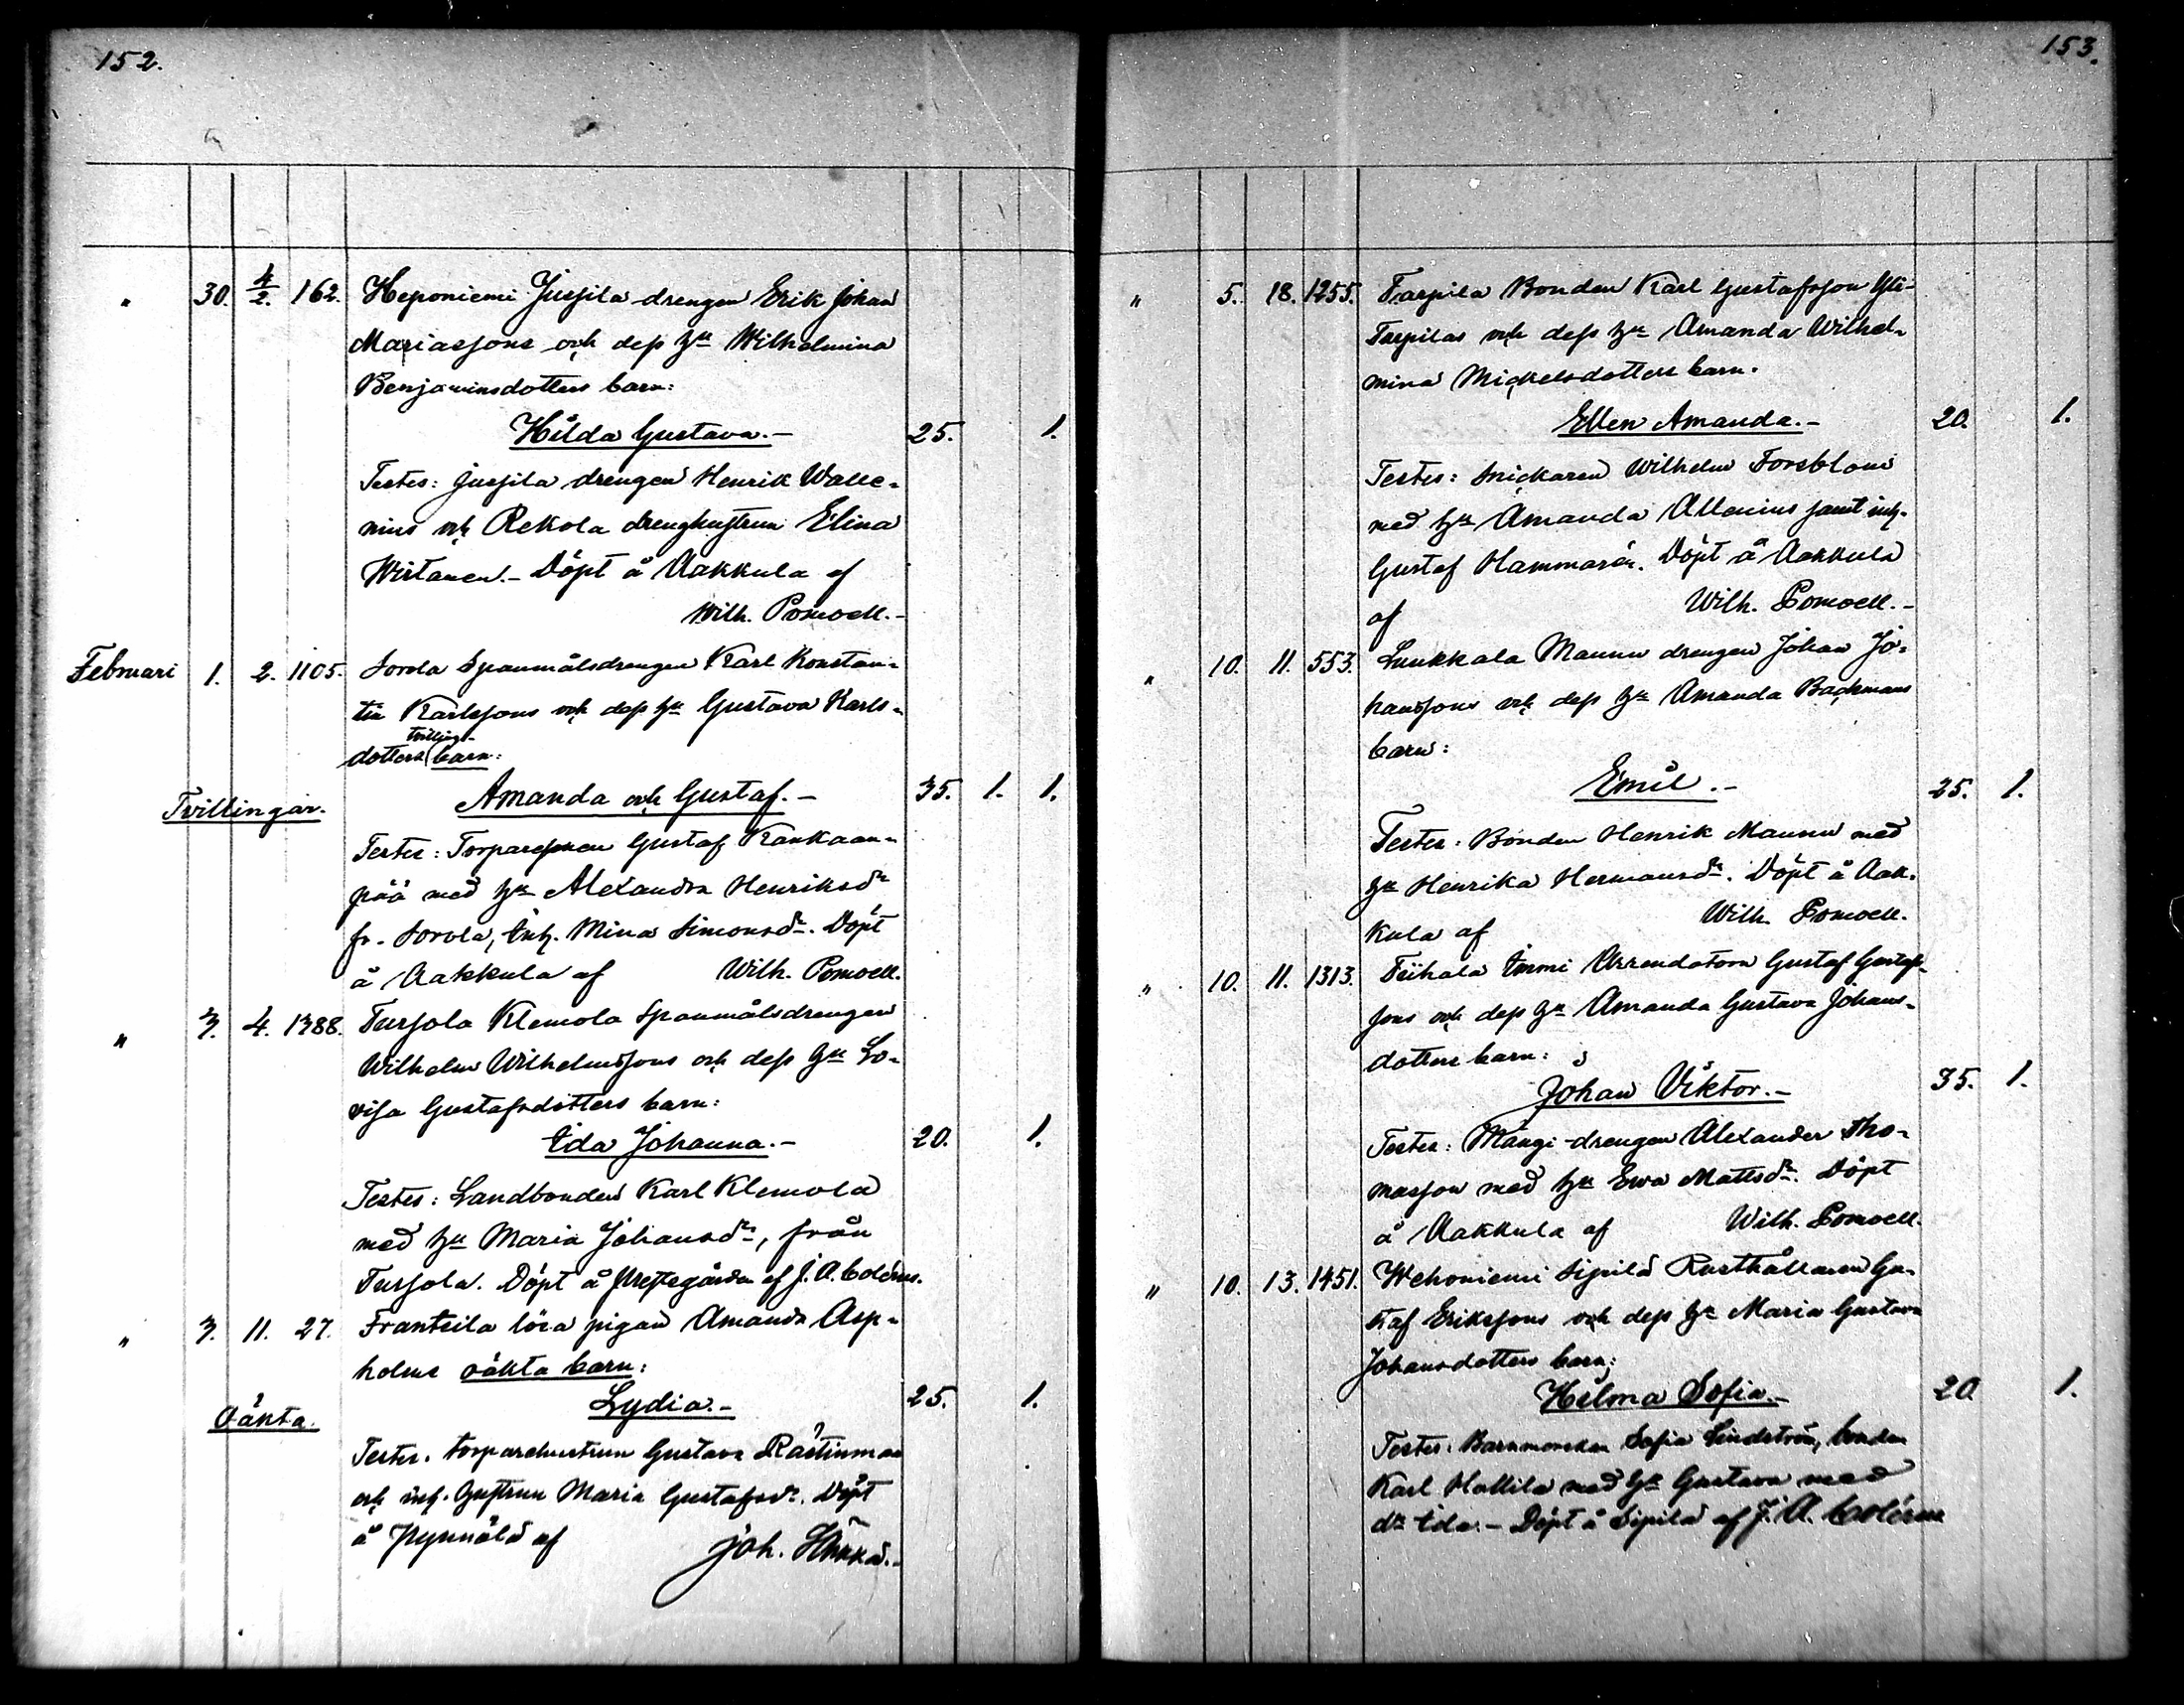 152.
" 30. 4/2. 162. Heponiemi Jussila drengen Erik Johan
Mariassons och dess hu Wilhelmina
Benjaminsdotters barn:
Hilda Gustava.- 25. 1.
Testes: Jussila drengen Henrik Walle-
nius och Rekola drenghustrun Elina
Wirtanen.- Döpt å Aakkula af
Wilh. Pomoell.-
Februari 1. 2. 1105. Sorola Spanmålsdrengen Karl Konstan-
tin Karlssons och dess hu Gustava Karls-
tvillings-
dotters barn:
Tvillingar. Amanda och Gustaf.- 35. 1. 1.
Testes: Gustaf Kankaan-
pää med hu Alexandra Henriksdr
fr. Sorola, Inh. Mina Simonsdr. Döpt
å Aakkula af Wilh. Pomoell.
" 3. 4. 1388. Tursola Klemola Spanmålsdrengen
Wilhelm Wilhelmssons och dess hu Lo-
visa Gustafsdotters barn:
Ida Johanna.- 20. 1.
Testes: Landbonden Karl Klemola
med hu Maria Johansdr, från
Tursola. Döpt å Prestegården af J. A. Colérus.
" 3. 11. 27. Frantsila lösa pigan Amanda Asp-
holms oäkta barn:
Oäkta. Lydia.- 25. 1.
Testes. torparehustrun Gustava
och inh. hustrun Maria Gustafsdr. Döpt
å af Joh.
153.
" 5. 18. 1255. Tarpila Bonden Karl Gustafsson Yli-
Tarpilas och dess hu Amanda Wilhel-
mina Mickelsdotters barn.
Ellen Amanda.- 20. 1.
Testes: Snickaren Wilhelm Forsblom
med hu Amanda Allenius samt inh.
Gustaf Hammarén. Döpt å Aakkula
af Wilh. Pomoell.-
" 10. 11. 553. Lunkkala Maunu drengen Johan Jo-
hanssons och dess hu Amanda Backmans
barn:
Emil.- 25. 1.
Testes: Bonden Henrik Maunu med
hu Henrika Hermansdr. Döpt å Aak-
kula af Wilh. Pomoell.
" 10. 11. 1313. Tiihala Immi Arrendatorn Gustaf Gustafs-
sons och dess hu Amanda Gustava Johans-
dotters barn:
Johan Viktor.- 35. 1.
Testes: Mängi-drengen Alexander Tho-
masson med hu Ewa Mattsdr. Döpt
å Aakkula af Wilh. Pomoell.
" 10. 13. 1451. Wehoniemi Sipilä Rusthållaren Gu-
staf Erikssons och dess hu Maria Gustava
Johansdotters barn:
Hilma Sofia.- 20 1.
Testes: Barnmorskan Sofia Lindström, bonden
Karl Hallila med hu Gustava med
dr Ida.- Döpt å Sipilä af J. A. Colérus